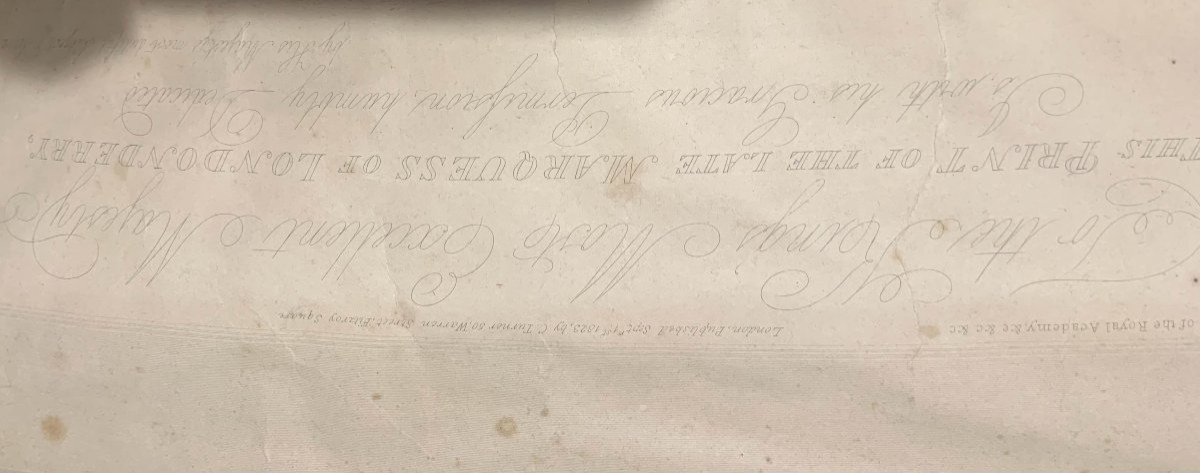 of the Royal Academy, &c &c &c London, Published Septr 1st 1823, by C. Turner 50, Warren Street, Fitzroy Square
To the Kings Most Excellent Majesty,
THIS PRINT OF THE LATE MARQUESS OF LONDONDERRY,
Is, with his Gracious Permission, humbly Dedicated
by His Majesty's most